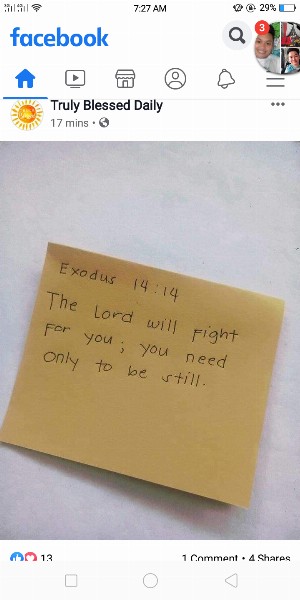 7:27 AM
29%
facebook
3
Truly Blessed Daily
17 mins
Exodus 14:14
The Lord will Fight
For you; you need
only to be still.
13
1 Comment • 4 Shares